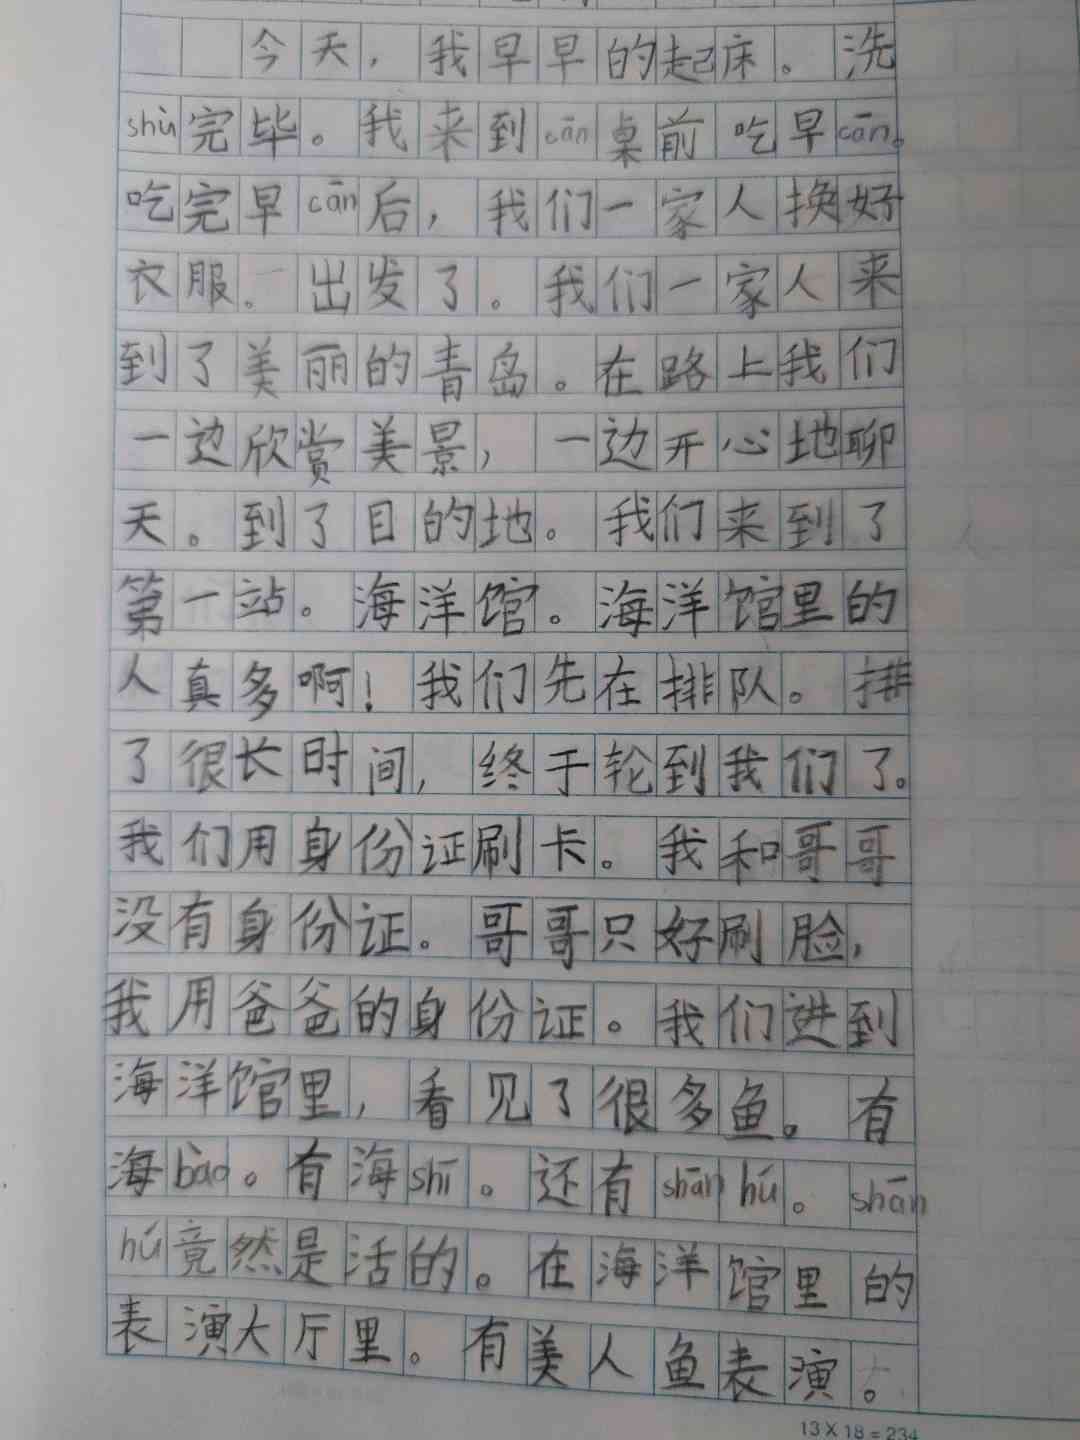 今天，我早早的起床。洗
shù完毕。我来到cān桌前吃早cān。
吃完早cān后，我们一家人换好
衣服。出发了。我们一家人来
到了美丽的青岛。在路上我们
一边欣赏美景，一边开心地聊
天。到了目的地。我们来到了
第一站。海洋馆。海洋馆里的
人真多啊！我们先在排队。排
了很长时间，终于轮到我们了。
我们用身份证刷卡。我和哥哥
没有身份证。哥哥只好刷脸，
我用爸爸的身份证。我们进到
海洋馆里，看见了很多鱼。有
海bào。有海shī。还有shānhú。shān
hú竟然是活的。在海洋馆里的
表演大厅里。有美人鱼表演。
13×18=234